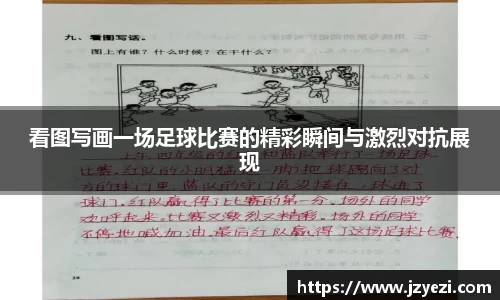 九、看图写话。
图上有谁？什么时候？在干什么？
看图写画一场足球比赛的精彩瞬间与激烈对抗展
现
上午,四年级的红队和蓝队举行了一场足球
比赛。红队的小明猛一脚,把球踢向了对
方的球门里,蓝队的守门员没接住,球进了
球门。红队赢得了比赛的第一分。场外的同学
欢呼起来。比赛又激烈又精彩。场外的同学
不停地喊加油,最后红队赢得了这场足球比赛.
38
https://www.jzyezi.com